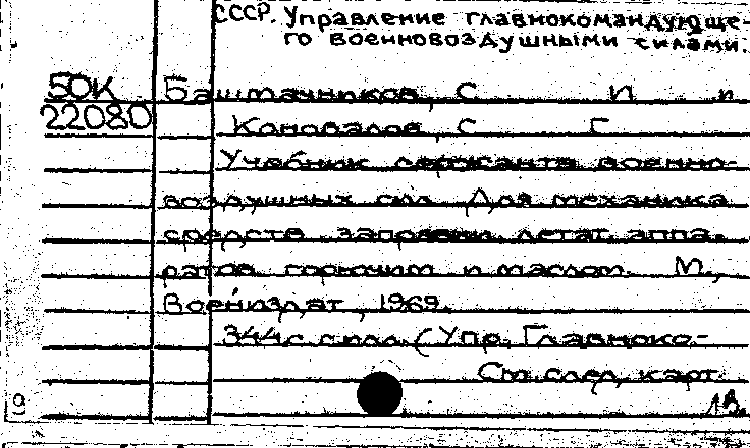 СССР. Управление главнокомандующе-
го военновоздушными силами.
50К
Баштачников, С И и
22080
Коновалов, С Г
Учебник сержанта военно-
воздушных сил Для механика
средств заправки летат. аппа-
ратов горючим и маслом. М.,
Воениздат, 1969.
344с с илл. (Упр. Главноко-
См след, карт.